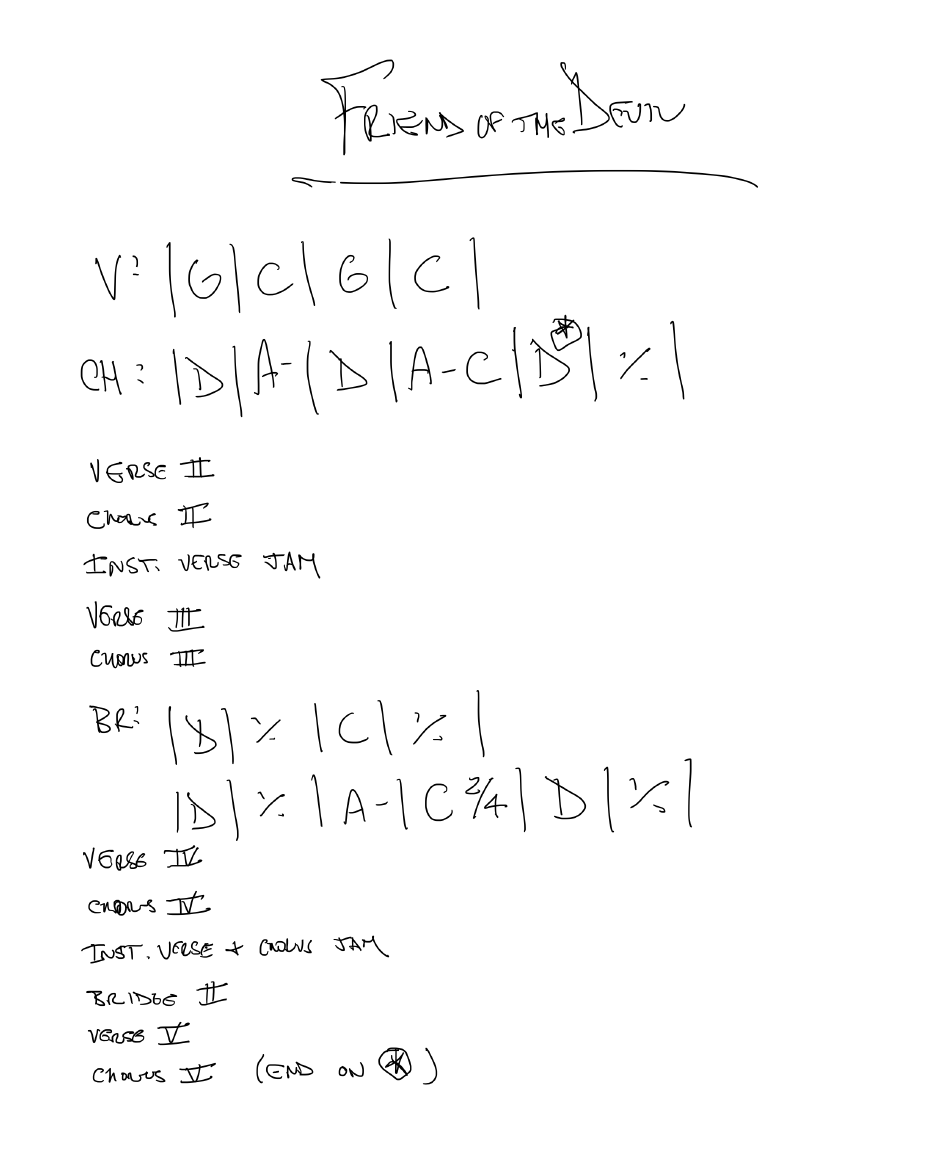 FRIEND OF THE DEVIL
V: | G | C | G | C |
CH: | D | A- | D | A-C | D* | ٪ |
VERSE II
CHORUS II
INST. VERSE JAM
VERSE III
CHORUS III
BR: | D | ٪ | C | ٪ |
| D | ٪ | A- | C 2/4 | D | ٪ |
VERSE IV
CHORUS IV
INST. VERSE + CHORUS JAM
BRIDGE II
VERSE V
CHORUS V (END ON *)